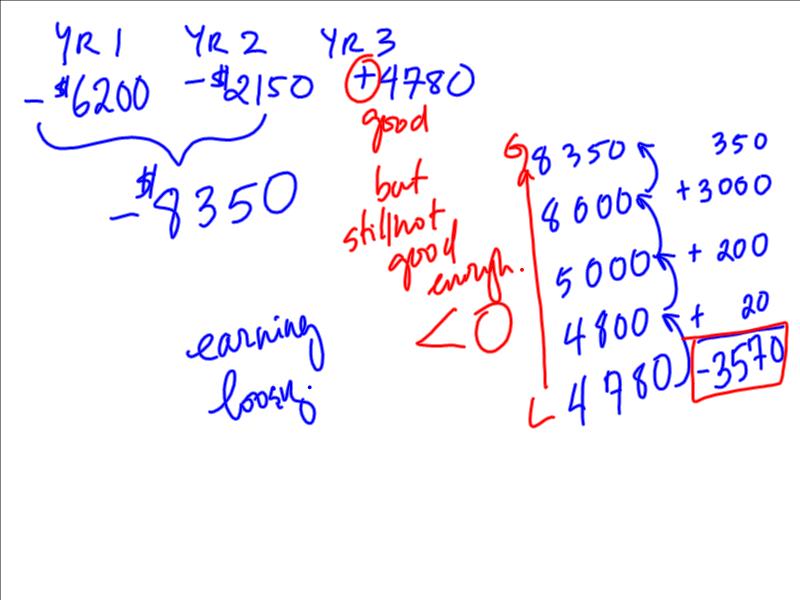 YR 1 YR 2 YR 3
-$6200 -$2150 +4780
good
-$8350
but
still not
good
enough.
< 0
earning
loosing
G 8350 350
8000 +3000
5000 + 200
4800 + 20
L 4780 -3570